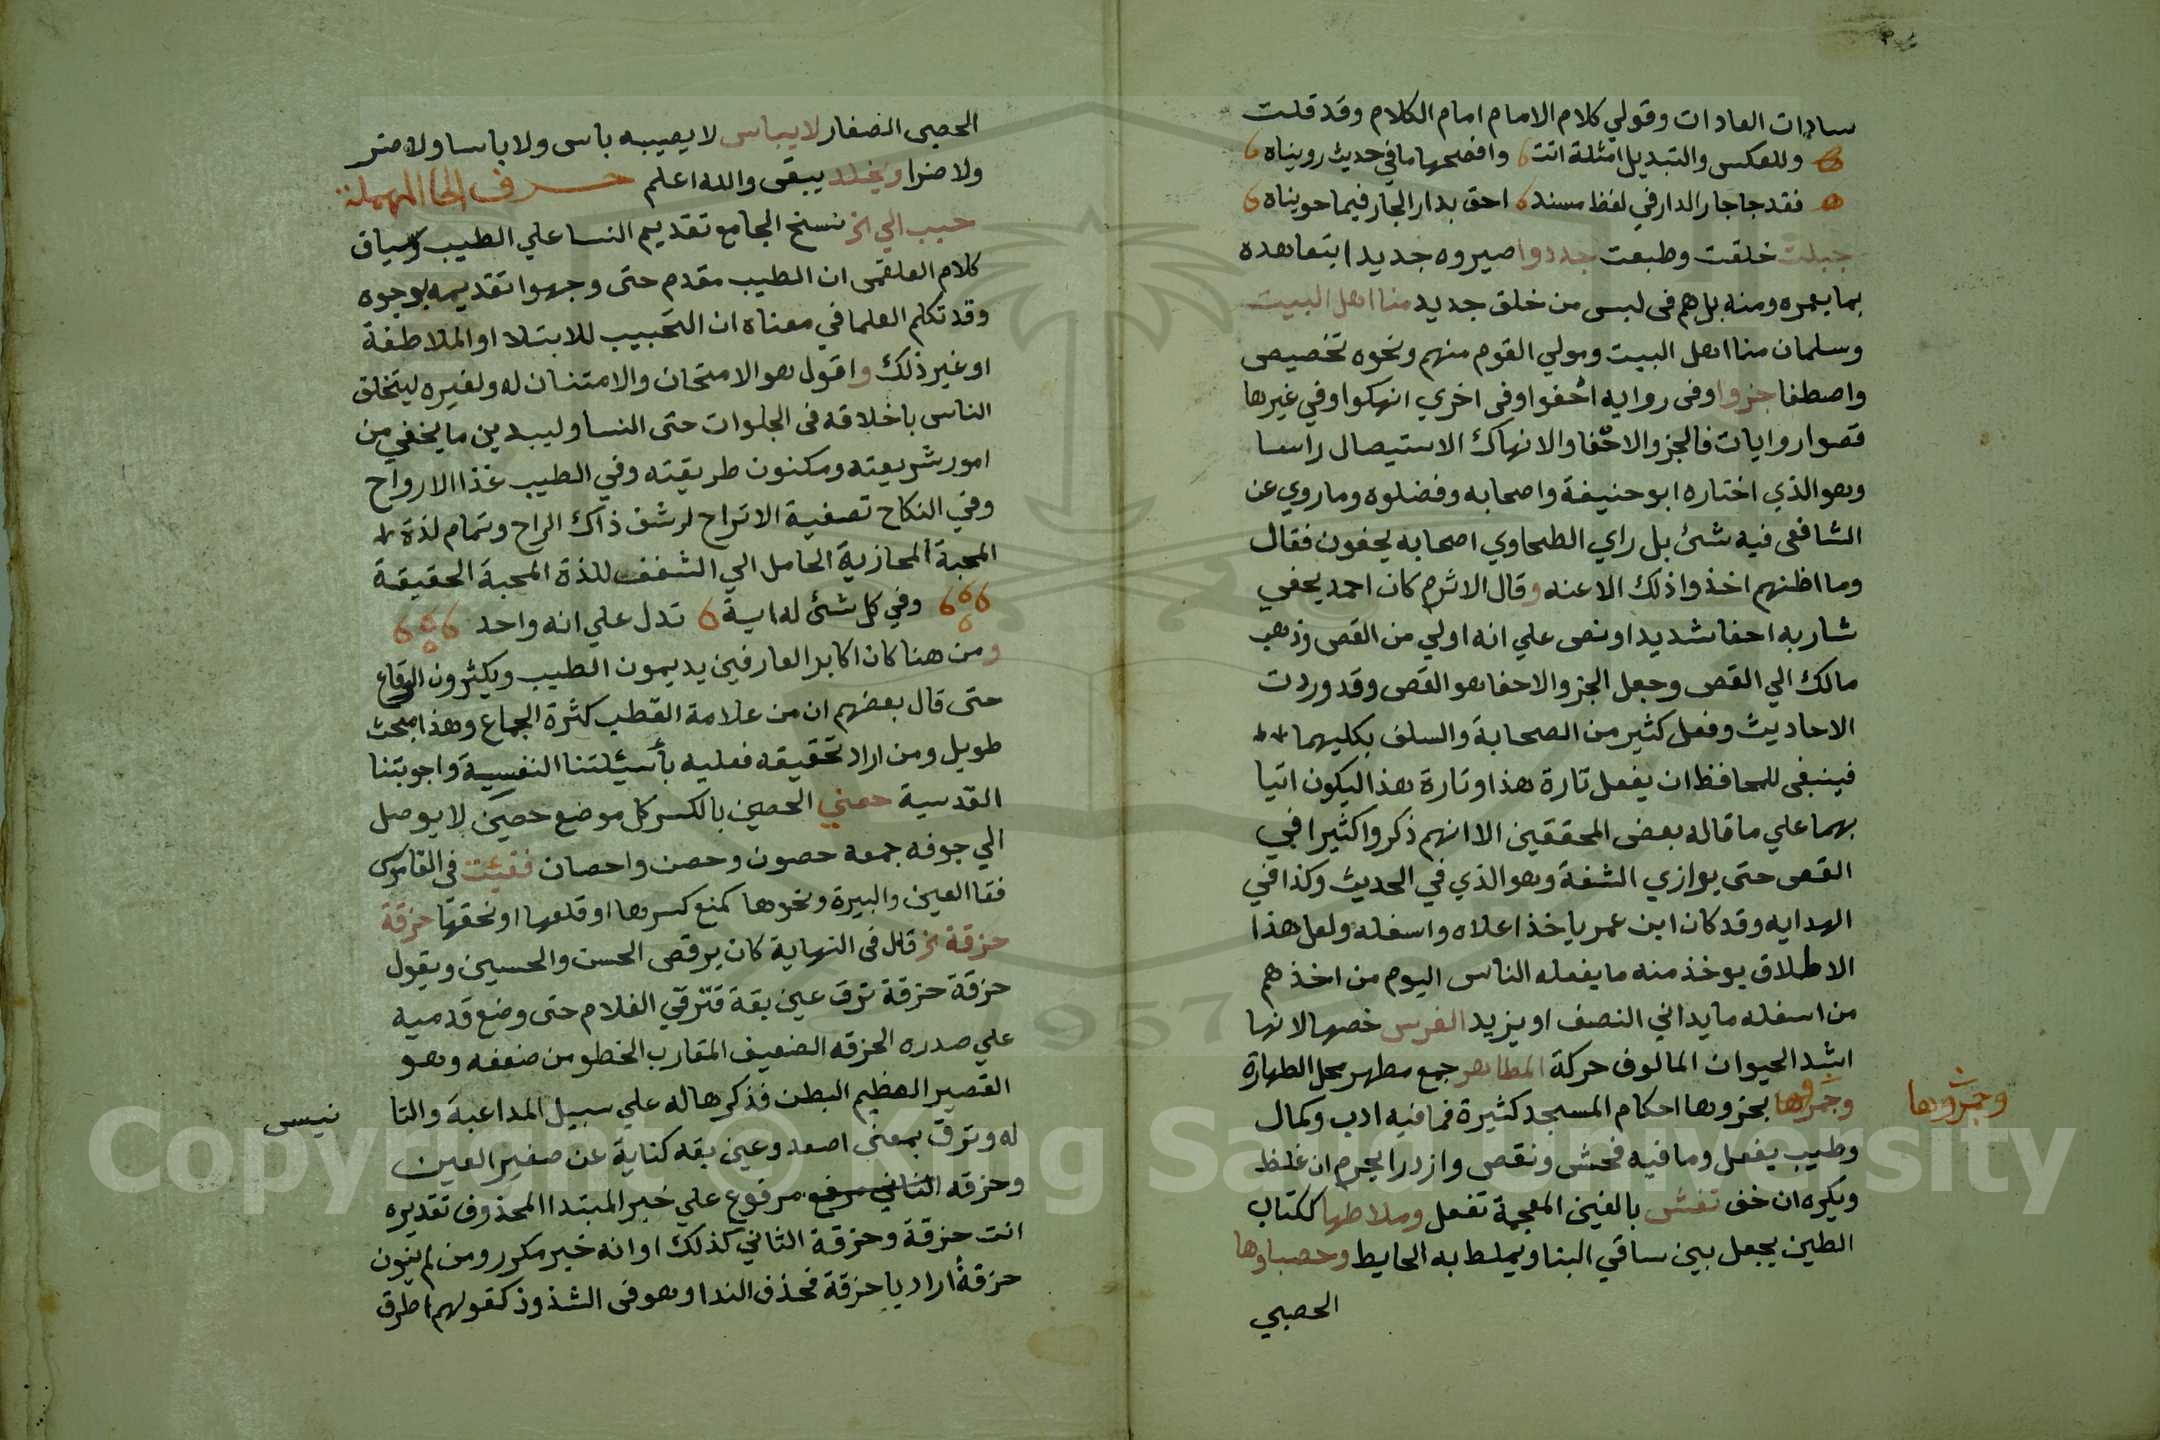 سادات العادات وقولي كلام الامام امام الكلام وقد قلت
وللعكس والتبديل امثلة اتت وافصحها ما في حديث رويناه
فقد جا جار الدار في لفظ مسند احق بدار الجار فيما حويناه
جبلت خلقت وطبعت جددوا صيروه جديدا بتعاهده
بما يعمره ومنه بل هم في لبس من خلق جديد منا اهل البيت
وسلمان منا اهل البيت ومولي القوم منهم ونحوه تخصيص
واصطفا جزوا وفي روايه احفوا وفي اخري انهكوا وفي غيرها
قصوا روايات فالجز والاحفا والانهاك الاستيصال راسا
وهو الذي اختاره ابو حنيفة واصحابه وفضلوه وما روي عن
الشافعي فيه شئ بل راي الطحاوي اصحابه يحفون فقال
وما اظنهم اخذوا ذلك الا عنه وقال الاثرم كان احمد يحفي
شاربه احفا شديدا ونص علي انه اولي من القص وذهب
مالك الي القص وجعل الجز والاحفا هو القص وقد وردت
الاحاديث وفعل كثير من الصحابة والسلف بكليهما
فينبغي للمحافظ ان يفعل تارة هذا وتارة هذا ليكون اتيا
بهما علي ما قاله بعض المحققين الا انهم ذكروا كثيرا في
القص حتى يوازي الشفة وهو الذي في الحديث وكذا في
الهدايه وقد كان ابن عمر ياخذ اعلاه واسفله ولعل هذا
الاطلاق يوخذ منه ما يفعله الناس اليوم من اخذهم
من اسفله ما يداني النصف او يزيد الفرس خصها لانها
اشد الحيوان المالوف حركة المطاهر جمع مطهر محل الطهارة
وجمروها بخروها احكام المسجد كثيرة فما فيه ادب وكمال
وجمروها
وطيب يفعل وما فيه فحش ونقص وازدرا يحرم ان غلظ
ويكره ان خف تفش بالغين المعجمة تفعل وملاطها ككتاب
الطين يجعل بين ساقي البنا ويملط به الحايط وحصباوها
الحصبي
الحصى الصغار لا يباس لا يصيبه باس ولا باسا ولا ضر
ولا ضرا ويخلد يبقى والله اعلم حرف الحا المهملة
حبب الي الخ نسخ الجامع تقديم النسا علي الطيب وسياق
كلام العلقمى ان الطيب مقدم حتى وجهوا تقديمه بوجوه
وقد تكلم العلما في معناه ان التحبيب للابتلا او الملاطفة
او غير ذلك واقول هو الامتحان والامتنان له ولغيره ليتخلق
الناس باخلاقه في الجلوات حتى النسا وليبدين ما يخفي من
امور شريعته ومكنون طريقته وفي الطيب غذا الارواح
وفي النكاح تصفية الاتراح لرشف ذاك الراح وتمام لذة
المحبة المجازية الحامل الي الشغف للذة المحبة الحقيقة
وفي كل شئ له اية تدل علي انه واحد
ومن هنا كان اكابر العارفين يديمون الطيب ويكثرون الوقاع
حتى قال بعضهم ان من علامة القطب كثرة الجماع وهذا مبحث
طويل ومن اراد تحقيقه فعليه بأسئلتنا النفسية واجوبتنا
القدسية حصني الحصين بالكسر كل موضع حصين لا يوصل
الي جوفه جمعه حصون وحصن واحصان فقيئت في القاموس
فقا العين والبيرة ونحوها كمنع كسرها او قلعها او نحقها حزقة
حزقة الخ قال في النهاية كان يرقص الحسن والحسين ويقول
حزقة حزقة ترق عين بقة فترقي الغلام حتى وضع قدميه
علي صدره الحزقه الضعيف المقارب الخطو من ضعفه وهو
القصير العظيم البطن فذكرها له علي سبيل المداعبة والتا
نيس
له وترق بمعنى اصعد وعين بقه كناية عن صغير العين
وحزقه مرفوع علي خبر المبتدا المحذوف تقديره
انت حزقة وحزقة الثاني كذلك او انه خبر مكرر ومن لم ينون
حزقة اراد يا حزقة فحذف الندا وهو في الشذوذ كقولهم اطرق